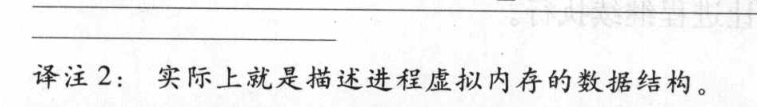 译注 2： 实际上就是描述进程虚拟内存的数据结构。